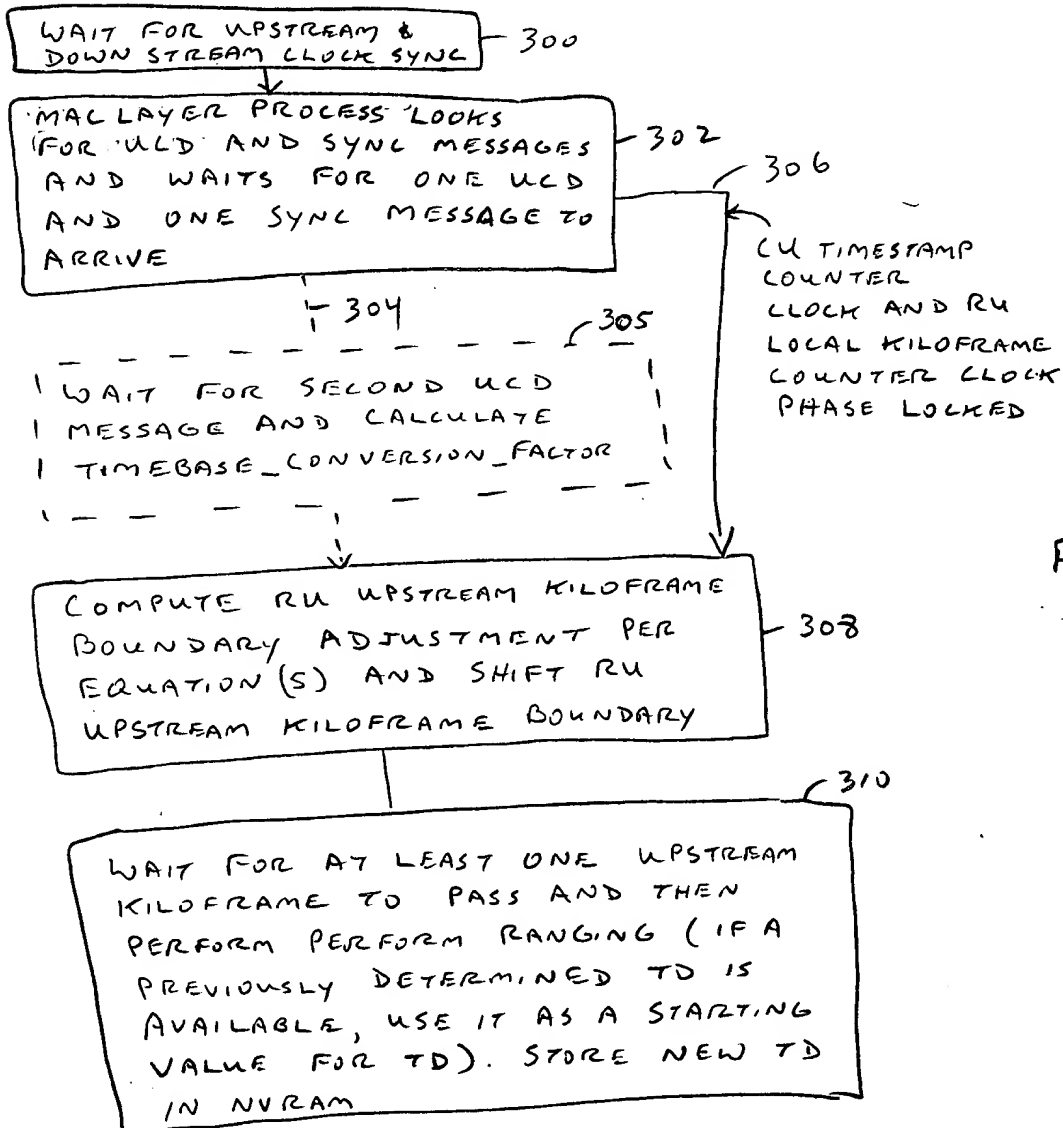 WAIT FOR UPSTREAM &
DOWN STREAM CLOCK SYNC
300
MAC LAYER PROCESS LOOKS
FOR UCD AND SYNC MESSAGES
AND WAITS FOR ONE UCD
AND ONE SYNC MESSAGE TO
ARRIVE
302
306
CU TIMESTAMP
COUNTER
CLOCK AND RU
LOCAL KILOFRAME
COUNTER CLOCK
PHASE LOCKED
304
305
WAIT FOR SECOND UCD
MESSAGE AND CALCULATE
TIMEBASE_CONVERSION_FACTOR
COMPUTE RU UPSTREAM KILOFRAME
BOUNDARY ADJUSTMENT PER
EQUATION (5) AND SHIFT RU
UPSTREAM KILOFRAME BOUNDARY
308
310
WAIT FOR AT LEAST ONE UPSTREAM
KILOFRAME TO PASS AND THEN
PERFORM PERFORM RANGING (IF A
PREVIOUSLY DETERMINED TD IS
AVAILABLE, USE IT AS A STARTING
VALUE FOR TD). STORE NEW TD
IN NVRAM